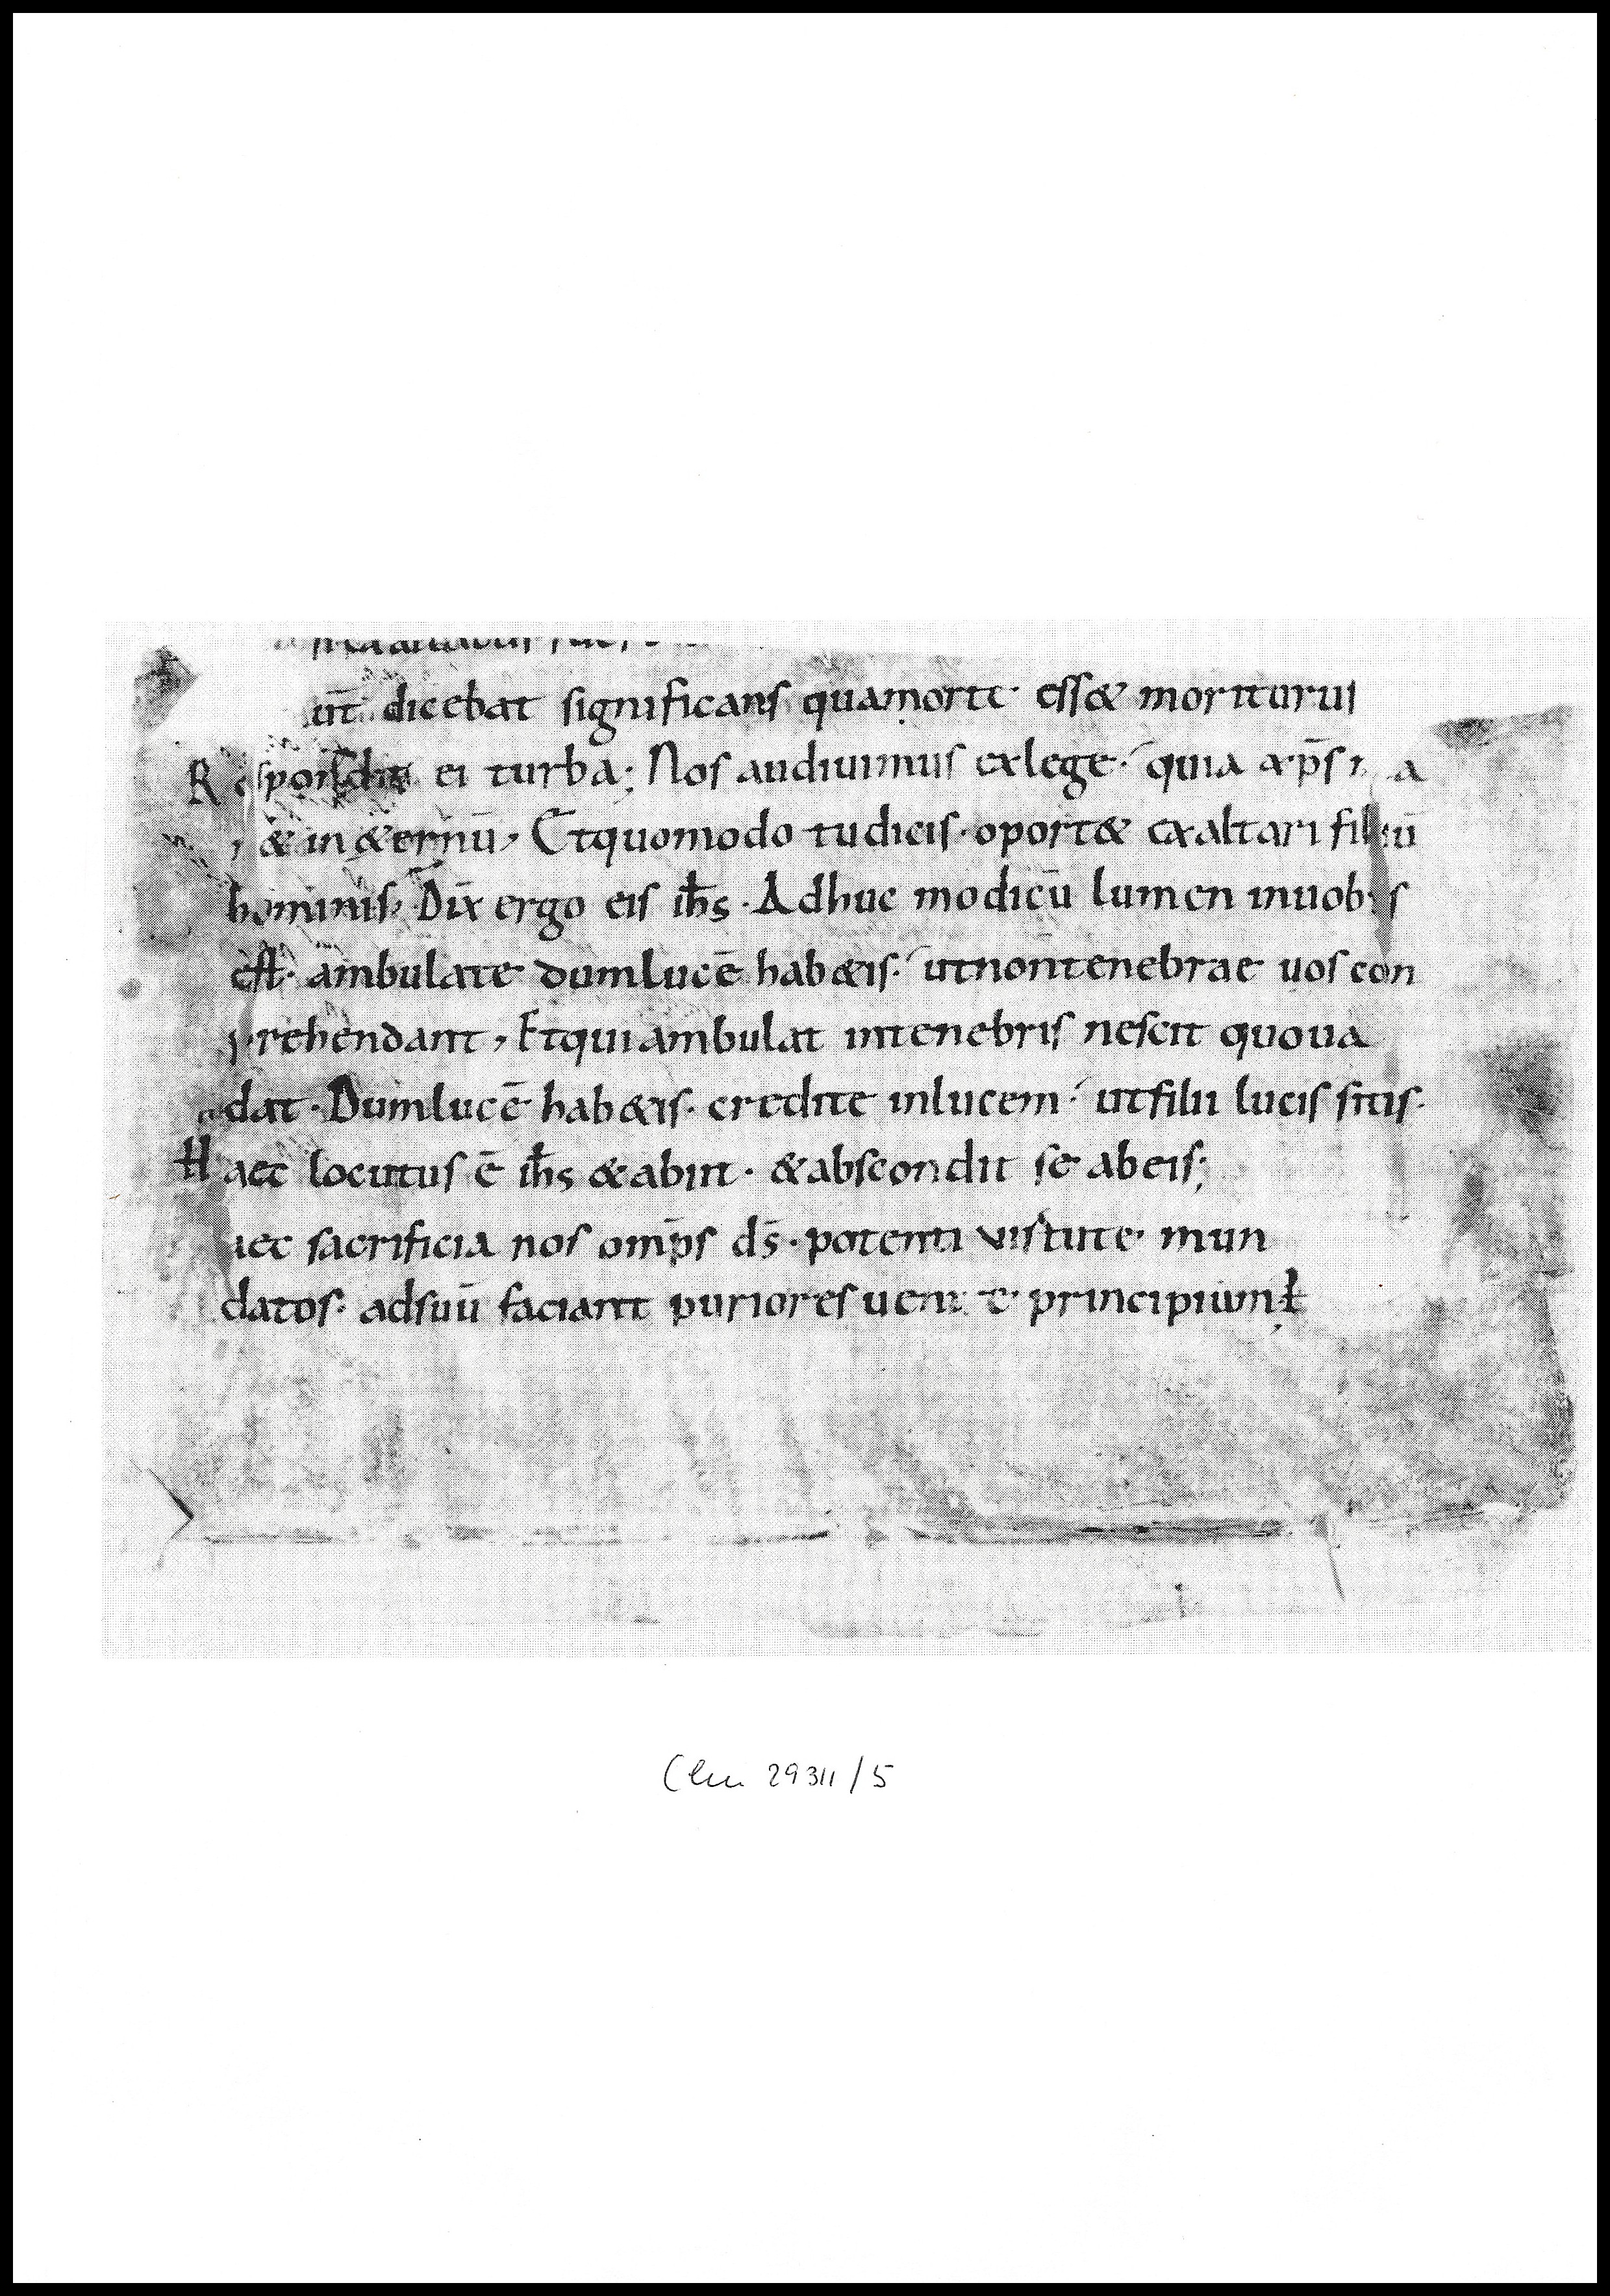 aut dicebat significans quamorte ess& moriturus
Respondit ei turba; Nos audiuimus exlege· quia xp̄s ma
n& in&ernū, Etquomodo tudicis· oport& exaltari filiū
hominis, Dix̄ ergo eis ih̄s · Adhuc modicū lumen inuobis
est· ambulate dumlucē hab&is· utnontenebrae uos con
prehendant, Etqui ambulat intenebris nescit quoua
dat · Dumlucē hab&is · credite inlucem· utfilii lucis sitis·
Haec locutus ē ih̄s &abiit · &abscondit se abeis;
aec sacrificia nos omp̄s ds̄ · potenti uirtute mun
datos· adsuū faciant puriores uenire principium ł
Clm 29311/5